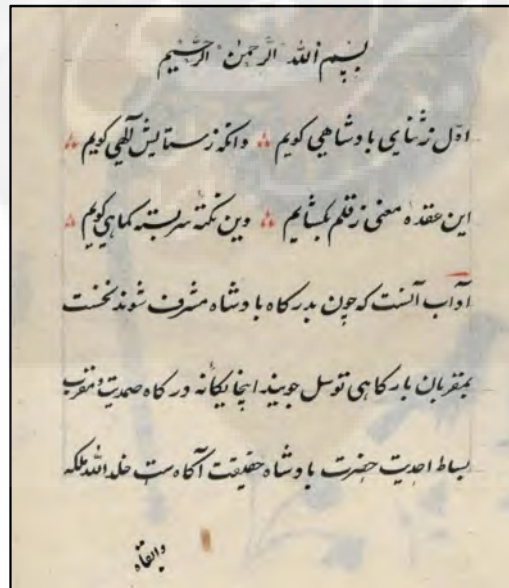 بسم الله الرحمن الرحیم
اول ز ثنای بادشاهی کویم ∴ وانکه ز ستایش آلهی کویم ∴
این عقده معنی ز قلم بکشایم ∴ وین نکتهٔ سربسته کماهی کویم ∴
آداب آنست که چون بدرکاه بادشاه مشرف شوند نخست
بمقربان بارکاهی توسل جویند اینجا یکانهٔ درکاه صمدیت و مقرب
بساط احدیت حضرت بادشاه حقیقت آکاه ست خلد الله ملکه
وابقاه